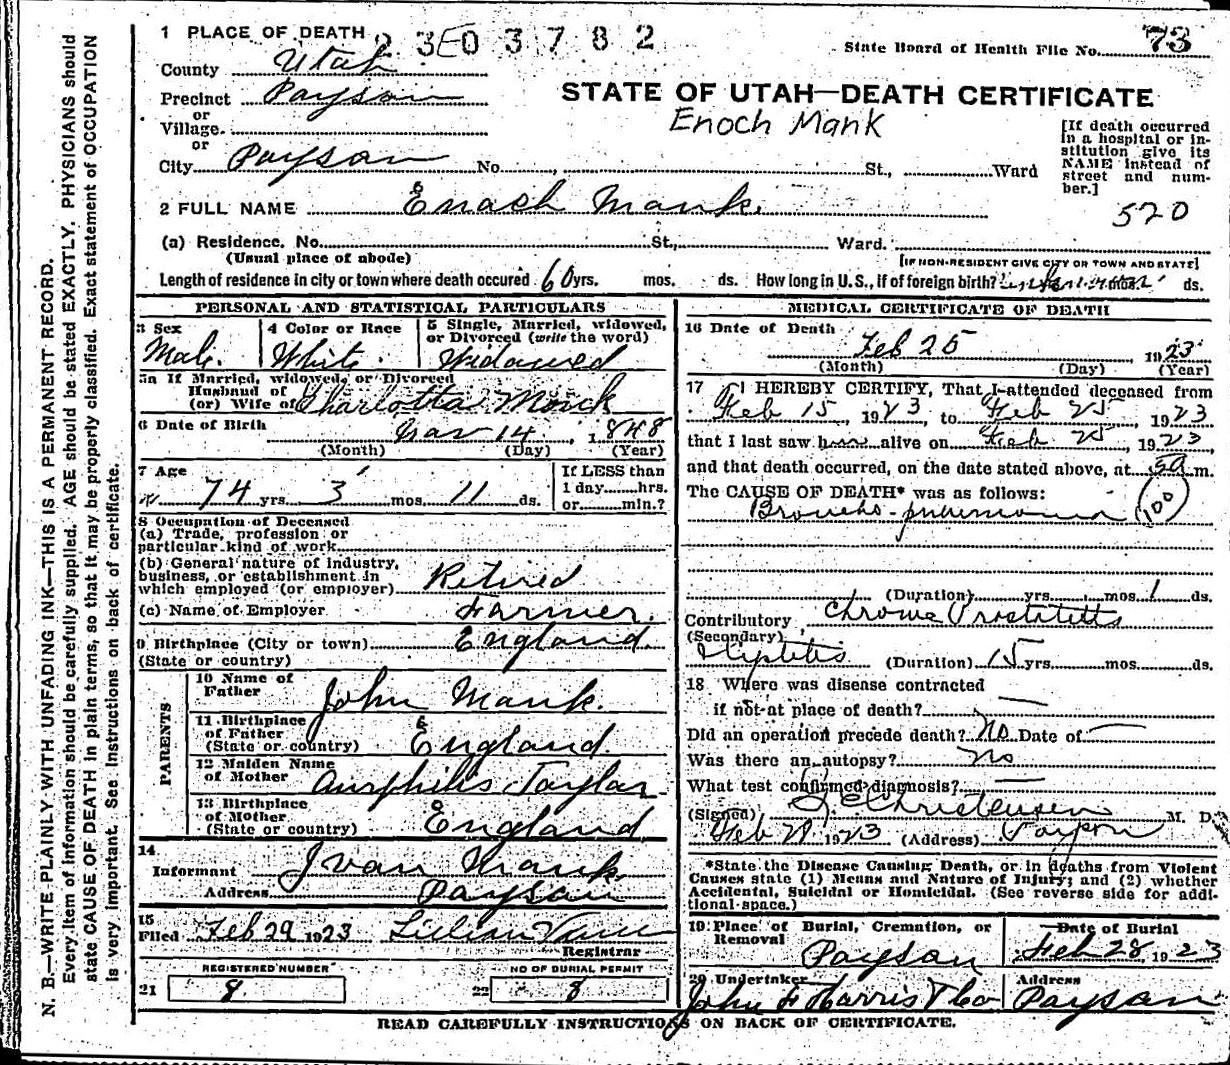 1 PLACE OF DEATH
23E03782
State Board of Health File No. 73
County Utah
Precinct Payson
or
Village
or
City Payson No. St., Ward
STATE OF UTAH—DEATH CERTIFICATE
Enoch Mank
[If death occurred in a hospital or institution give its NAME instead of street and number.]
520
2 FULL NAME Enoch Mank
(a) Residence. No. St., Ward.
(Usual place of abode)
[IF NON-RESIDENT GIVE CITY OR TOWN AND STATE]
Length of residence in city or town where death occured 60 yrs. mos. ds. How long in U.S., if of foreign birth? ds.
PERSONAL AND STATISTICAL PARTICULARS
3 Sex
Male
4 Color or Race
White
5 Single, Married, widowed, or Divorced (write the word)
Widowed
5a If Married, widowed, or Divorced
Husband of
(or) Wife of Charlotta
6 Date of Birth
14, 1848
(Month) (Day) (Year)
7 Age
74 yrs. 3 mos. 11 ds.
If LESS than
1 day hrs.
or min.?
8 Occupation of Deceased
(a) Trade, profession or
particular kind of work
(b) General nature of industry,
business, or establishment in
which employed (or employer) Retired
(c) Name of Employer Farmer.
9 Birthplace (City or town) England.
(State or country)
PARENTS
10 Name of Father John Mank.
11 Birthplace of Father
(State or country) England.
12 Maiden Name of Mother Taylor
13 Birthplace of Mother
(State or country) England
14
Informant Ivan Mank.
Address Payson
15
Filed Feb 29 1923 Lillian
Registrar
REGISTERED NUMBER
21 8
NO OF BURIAL PERMIT
22 8
MEDICAL CERTIFICATE OF DEATH
16 Date of Death
Feb 25, 1923
(Month) (Day) (Year)
17 I HEREBY CERTIFY, That I attended deceased from
Feb 15, 1923 to Feb 25, 1923
that I last saw him alive on Feb 25, 1923,
and that death occurred, on the date stated above, at 5a m.
The CAUSE OF DEATH* was as follows:
Broncho-pneumonia 100
(Duration) yrs. mos. 1 ds.
Contributory Chronic Prostatitis
(Secondary)
(Duration) 15 yrs. mos. ds.
18 Where was disease contracted
if not at place of death?
Did an operation precede death? No Date of
Was there an autopsy? No
What test confirmed diagnosis?
(Signed) Christensen M. D.
Feb 28 1923 (Address) Payson
*State the Disease Causing Death, or in deaths from Violent
Causes state (1) Means and Nature of Injury; and (2) whether
Accidental, Suicidal or Homicidal. (See reverse side for additional space.)
19 Place of Burial, Cremation, or Removal
Payson
Date of Burial
Feb 28 1923
20 Undertaker
John F Harris & Co
Address
Payson
READ CAREFULLY INSTRUCTIONS ON BACK OF CERTIFICATE.
N. B.—WRITE PLAINLY WITH UNFADING INK—THIS IS A PERMANENT RECORD.
Every item of information should be carefully supplied. AGE should be stated EXACTLY. PHYSICIANS should
state CAUSE OF DEATH in plain terms, so that it may be properly classified. Exact statement of OCCUPATION
is very important. See Instructions on back of certificate.